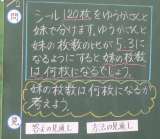 問
シール120枚をゆうかさんと
妹で分けます。ゆうかさんと
妹の枚数の比が5:3に
なるようにすると妹の枚数
は何枚になるでしょう。
妹の枚数は何枚になるか
考えよう。
見
答えの見通し 方法の見通し